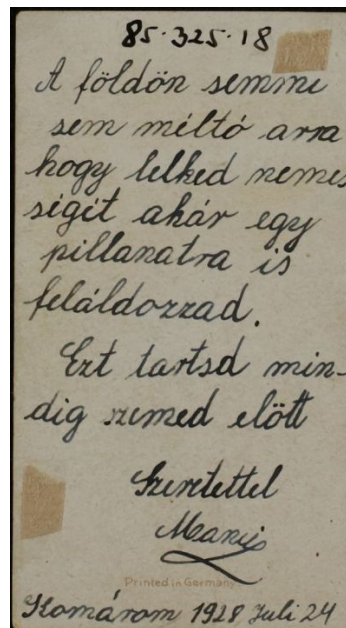 85.325.18
A földön semmi
sem méltó arra
hogy lelked nemes
ségit akár egy
pillanatra is
feláldozzad.
Ezt tartsd min-
dig szemed előtt
Szeretettel
Manyi
Printed in Germany
Komárom 1928 Juli 24